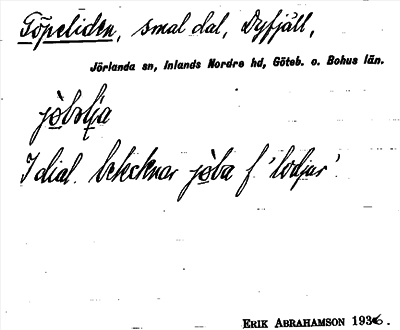 Göpeliden, smal dal, Dyfjäll,
Jörlanda sn, Inlands Nordre hd, Göteb. o. Bohus län.
I dial. betecknar jòba f 'lodjur'.
ERIK ABRAHAMSON 1936.